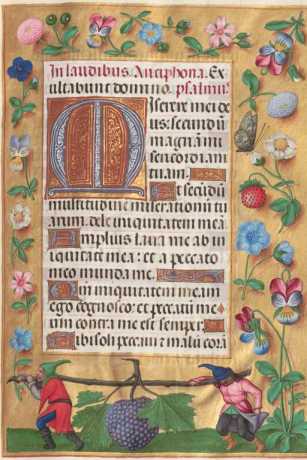 In laudibus. Antiphona. Ex
ultabunt domino. psalmus
Miserere mei de
us: secundū
magnā mi
sericordiam
tuam.
Et secūdū
multitudinē miserationū tu
arum: dele iniquitatem meā
Amplius laua me ab in
iquitate mea: et a peccato
meo munda me.
Quoniam iniquitatem meā
ego cognosco: et peccatum me
um contra me est semper
Tibi soli peccaui et malū corā